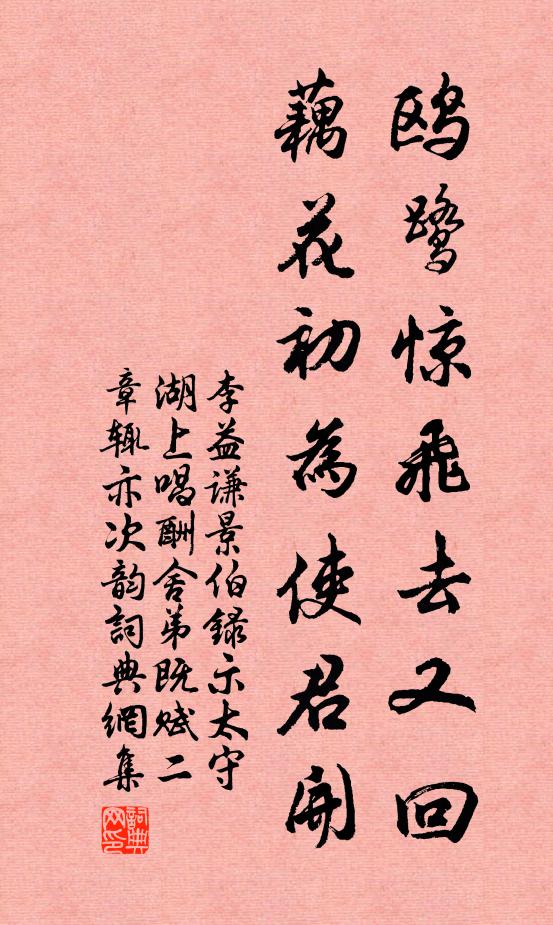 鸥鹭惊飛去又回
藕花初為使君開
李益谦景伯録示太守
湖上唱酬舍弟既赋二
章辄亦次韵詞典網集
詞典网印